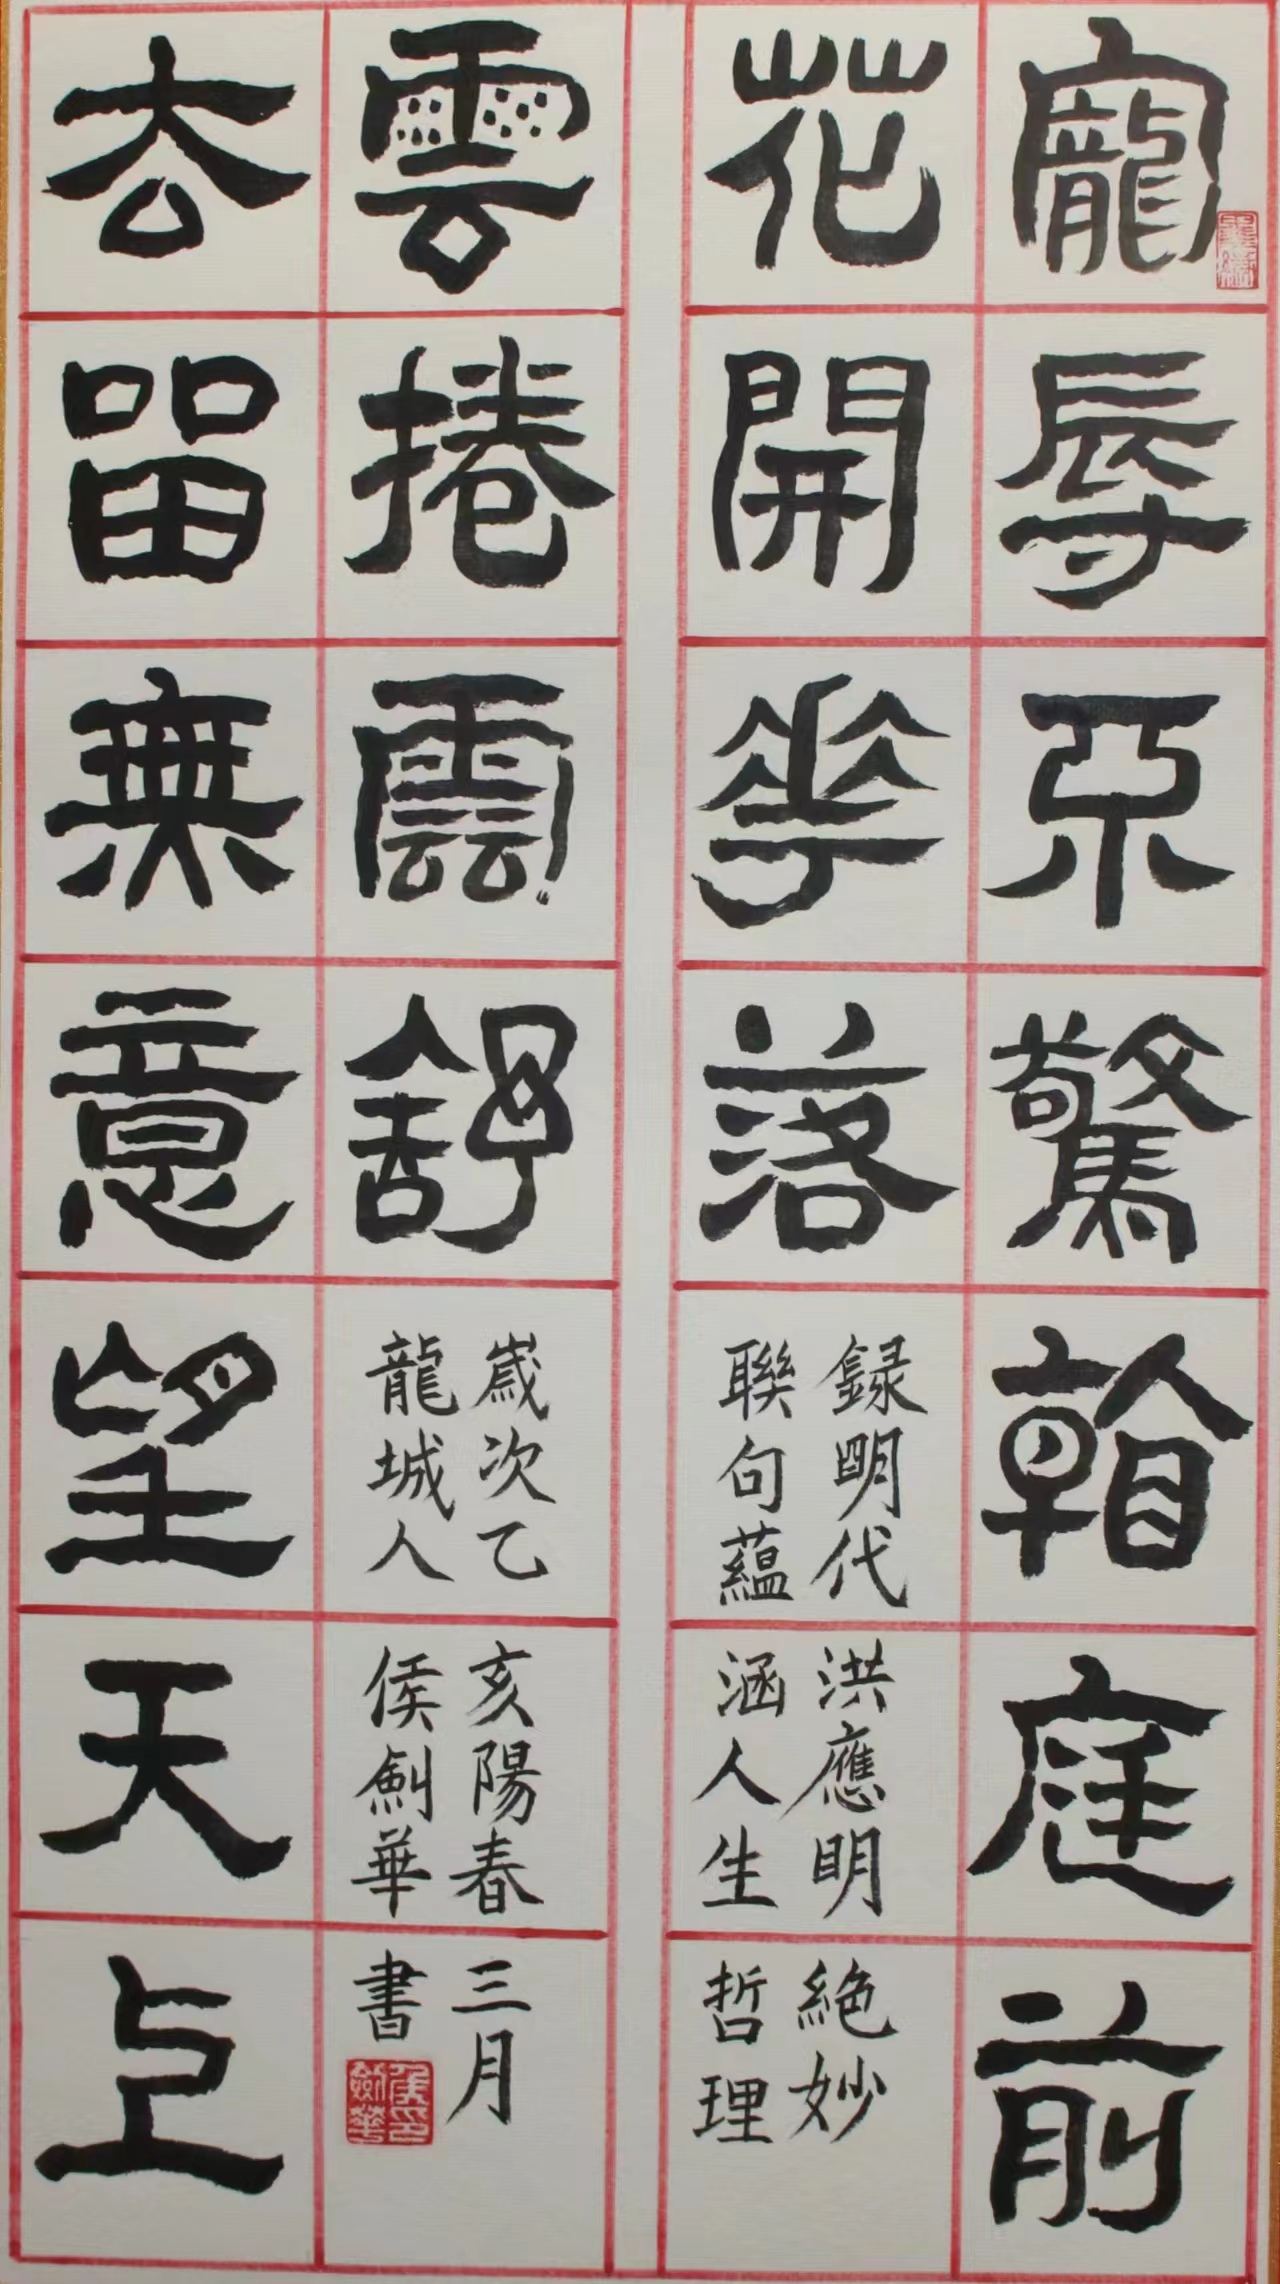 寵辱不驚看庭前
花開華落
録明代洪應明絶妙
聯句蘊涵人生哲理
雲捲雲舒
歲次乙亥陽春三月
龍城人侯劍華書
侯印劍華
去留無意望天上